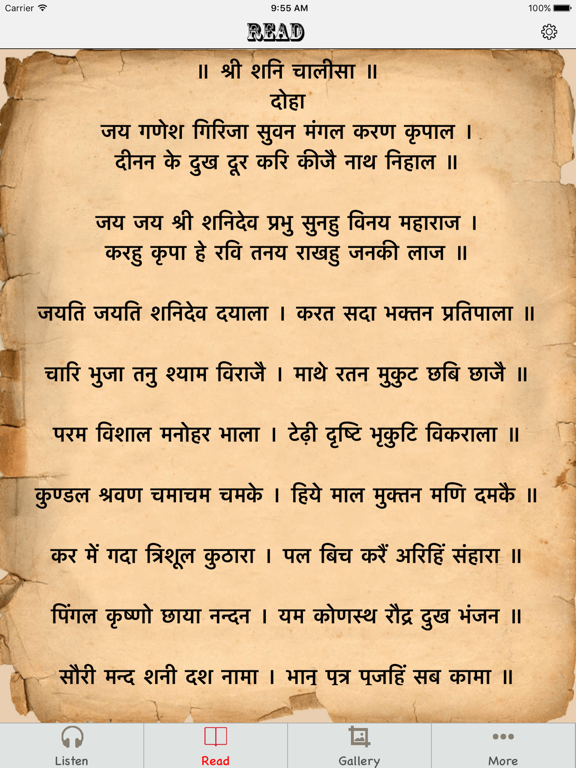 Carrier 9:55 AM 100%
READ
॥ श्री शनि चालीसा ॥
दोहा
जय गणेश गिरिजा सुवन मंगल करण कृपाल ।
दीनन के दुख दूर करि कीजै नाथ निहाल ॥
जय जय श्री शनिदेव प्रभु सुनहु विनय महाराज ।
करहु कृपा हे रवि तनय राखहु जनकी लाज ॥
जयति जयति शनिदेव दयाला । करत सदा भक्तन प्रतिपाला ॥
चारि भुजा तनु श्याम विराजै । माथे रतन मुकुट छबि छाजै ॥
परम विशाल मनोहर भाला । टेढ़ी दृष्टि भृकुटि विकराला ॥
कुण्डल श्रवण चमाचम चमके । हिये माल मुक्तन मणि दमकै ॥
कर में गदा त्रिशूल कुठारा । पल बिच करैं अरिहिं संहारा ॥
पिंगल कृष्णो छाया नन्दन । यम कोणस्थ रौद्र दुख भंजन ॥
सौरी मन्द शनी दश नामा । भानु पुत्र पूजहिं सब कामा ॥
Listen Read Gallery More